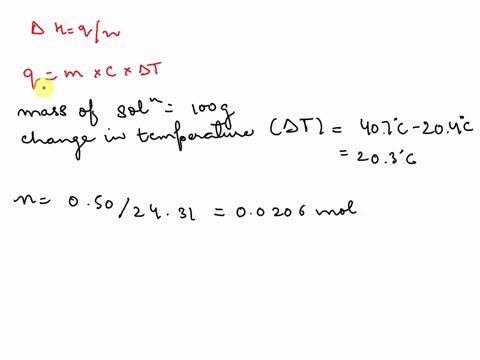 Δ H = q/n
q = m × c × ΔT
mass of solⁿ = 100g
change in temperature (ΔT) = 40.7°C - 20.4°C
= 20.3°C
n = 0.50 / 24.31 = 0.0206 mol